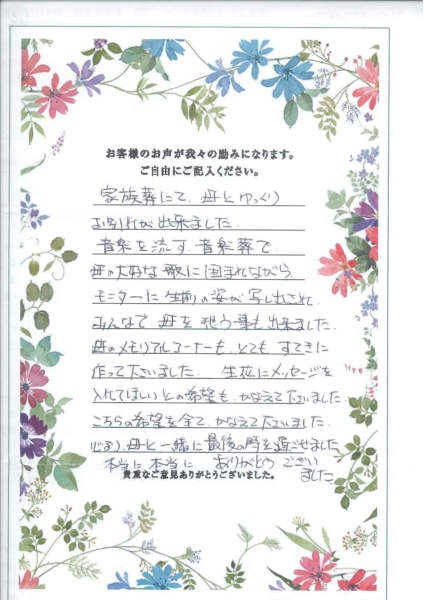 お客様のお声が我々の励みになります。
ご自由にご記入ください。
家族葬にて、母とゆっくり
お別れが出来ました。
音楽を流す、音楽葬で
母の大好な歌に囲まれながら
モニターに生前の姿が写し出されて、
みんなで、母を想う事も出来ました。
母のメモリアルコーナーも、とても すてきに
作って下さいました。 生花にメッセージを
入れてほしいとの希望も、かなえて下さいました。
こちらの希望を全て、かなえて下さいました。
心より母と一緒に最後の時を過ごせました。
本当に本当に ありがとう ござい
ました
貴重なご意見ありがとうございました。